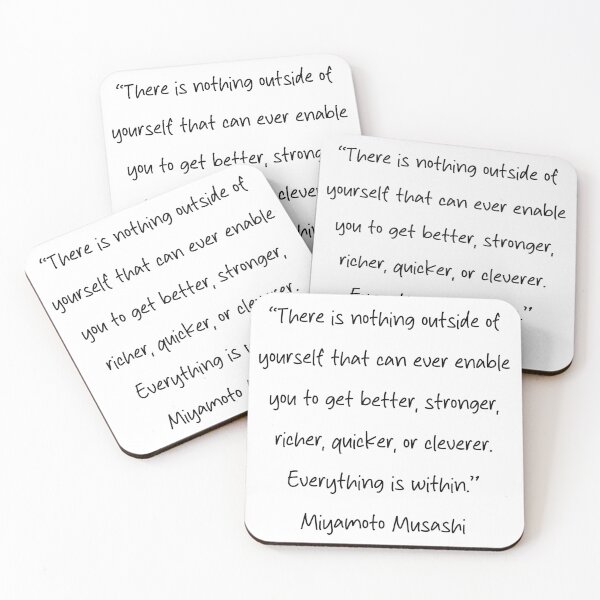 “There is nothing outside of
yourself that can ever enable
you to get better,
“There is nothing outside of
yourself that can ever enable
you to get better, stronger,
richer, quicker, or cleverer.
“There is nothing outside of
yourself that can ever enable
you to get better, stronger,
richer, quicker, or cleverer.
Everything is
Miyamoto
“There is nothing outside of
yourself that can ever enable
you to get better, stronger,
richer, quicker, or cleverer.
Everything is within.”
Miyamoto Musashi